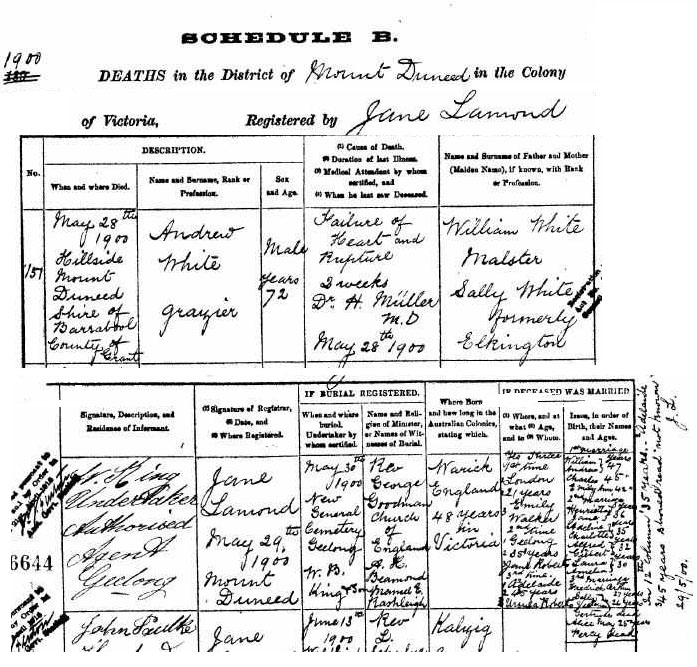 SCHEDULE B.
1900
DEATHS in the District of Mount Duneed in the Colony
of Victoria, Registered by Jane Lamond
DESCRIPTION.
No.
When and where Died.
Name and Surname, Rank or
Profession.
Sex
and Age.
(1) Cause of Death.
(2) Duration of last Illness.
(3) Medical Attendant by whom
certified, and
(4) When he last saw Deceased.
Name and Surname of Father and Mother
(Maiden Name), if known, with Rank
or Profession.
151
May 28th
1900
Hillside
Mount
Duneed
Shire of
Barrabool
County of
Grant
Andrew
White
grazier
Male
years
72
Failure of
Heart and
Rupture
2 weeks
Dr. H. Müller
M.D
May 28th 1900
William White
Malster
Sally White
formerly
Elkington
Signature, Description, and
Residence of Informant.
(1) Signature of Registrar,
(2) Date, and
(3) Where Registered.
IF BURIAL REGISTERED.
When and where
buried.
Undertaker by
whom certified.
Name and Reli-
gion of Minister,
or Names of Wit-
nesses of Burial.
Where Born
and how long in the
Australian Colonies,
stating which.
IF DECEASED WAS MARRIED
(1) Where, and at
what (2) Age,
and to (3) Whom.
Issue, in order of
Birth, their Names
and Ages.
6644
W. King
Undertaker
Authorised
Agent
Geelong
Jane
Lamond
May 29th
1900
Mount
Duneed
May 30th
1900
New
General
Cemetery
Geelong
W. B.
King & Son
Rev
George
Goodman
Church
of
England
A. R.
Beamond
Warwick
England
48 years
in
Victoria
1st time
London
21 years
Emily
Walker
2nd time
Geelong
35 years
Jane Roberts
3rd time
Adelaide
45 years
Ursula Roberts
1st Marriage
William
Andrew 47
Charles 45
Emily 42
2nd Marriage
Henrietta
Charlotte 35
Alfred 32
Laura 30
3rd Marriage
27 years
26 years
Gertrude dead
Alice May 25 years
Percy dead
In 12th column 35 years Adelaide
45 years should read not known
J. L.
29/5/00.
John
Jane
June 13th
1900
Rev
L.